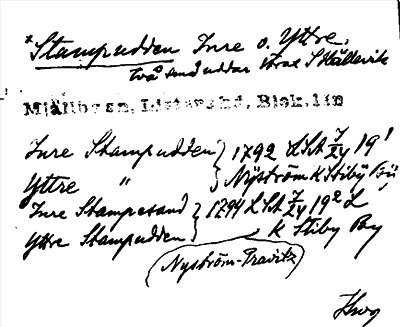 *Stampudden Inre o. Yttre.
två sandudder S Hällevik
Mjällby sn. Listers hd. Blek. län
Inre Stampudden } 1792 LSA 19¹
Yttre " } Nyström K Stiby By
Inre Stampesand } 1794 LSA 19² L
Yttre Stampudden } K Stiby By
(Nyström-Pravitz)